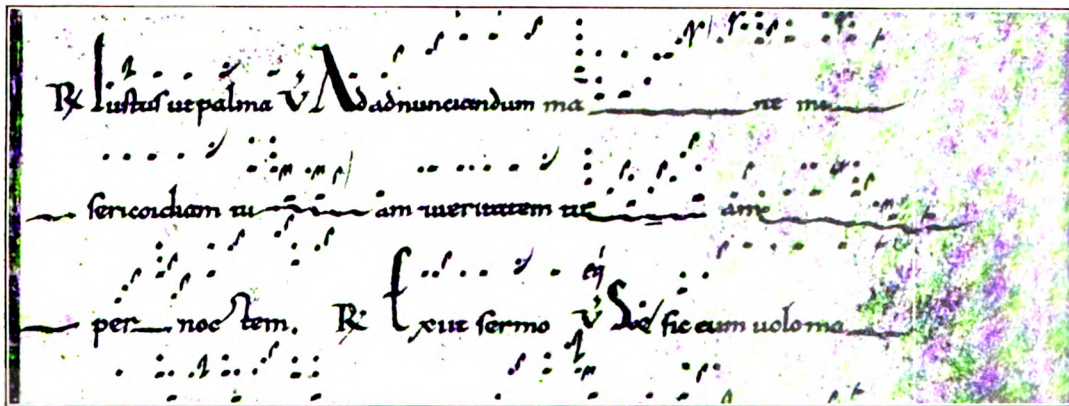 R Iustus ut palma V Ad adnunciandum ma ne mi
sericordiam tu am et veritatem tu am
per noc tem. R Exiit sermo V Sed sic eum uolo ma